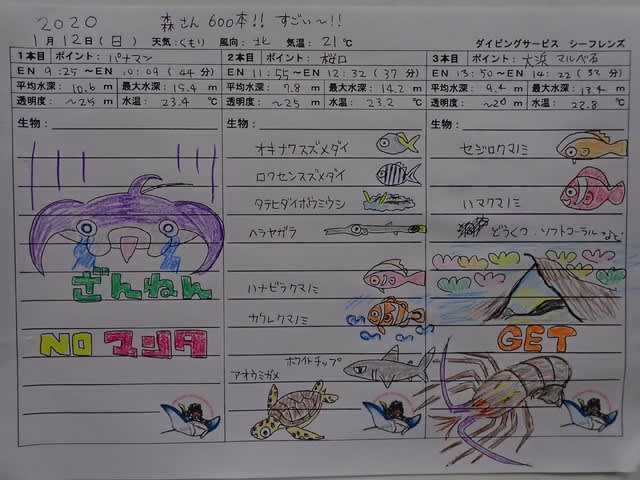 2020 森さん 600本!! すごい〜!!
1月12日(日) 天気:くもり 風向:北 気温:21℃ ダイビングサービス シーフレンズ
1本目 ポイント: パナマン
EN 9:25〜EN 10:09(44分)
平均水深: 10.6 m 最大水深: 15.4 m
透明度: 〜25 m 水温: 23.4 ℃
生物:
ざんねん
NO マンタ
2本目 ポイント: 桜口
EN 11:55〜EN 12:32(37分)
平均水深: 7.8 m 最大水深: 14.2 m
透明度: 〜25 m 水温: 23.2 ℃
生物:
オキナワスズメダイ
ロクセンスズメダイ
タテヒダイボウミウシ
ヘラヤガラ
ハナビラクマノミ
カクレクマノミ
ホワイトチップ
アオウミガメ
3本目 ポイント: 大浜 マルベ石
EN 13:50〜EN 14:22(32分)
平均水深: 9.4 m 最大水深: 13.4 m
透明度: 〜20 m 水温: 22.8 ℃
生物:
セジロクマノミ
ハマクマノミ
どうくつ.ソフトコーラル など
GET